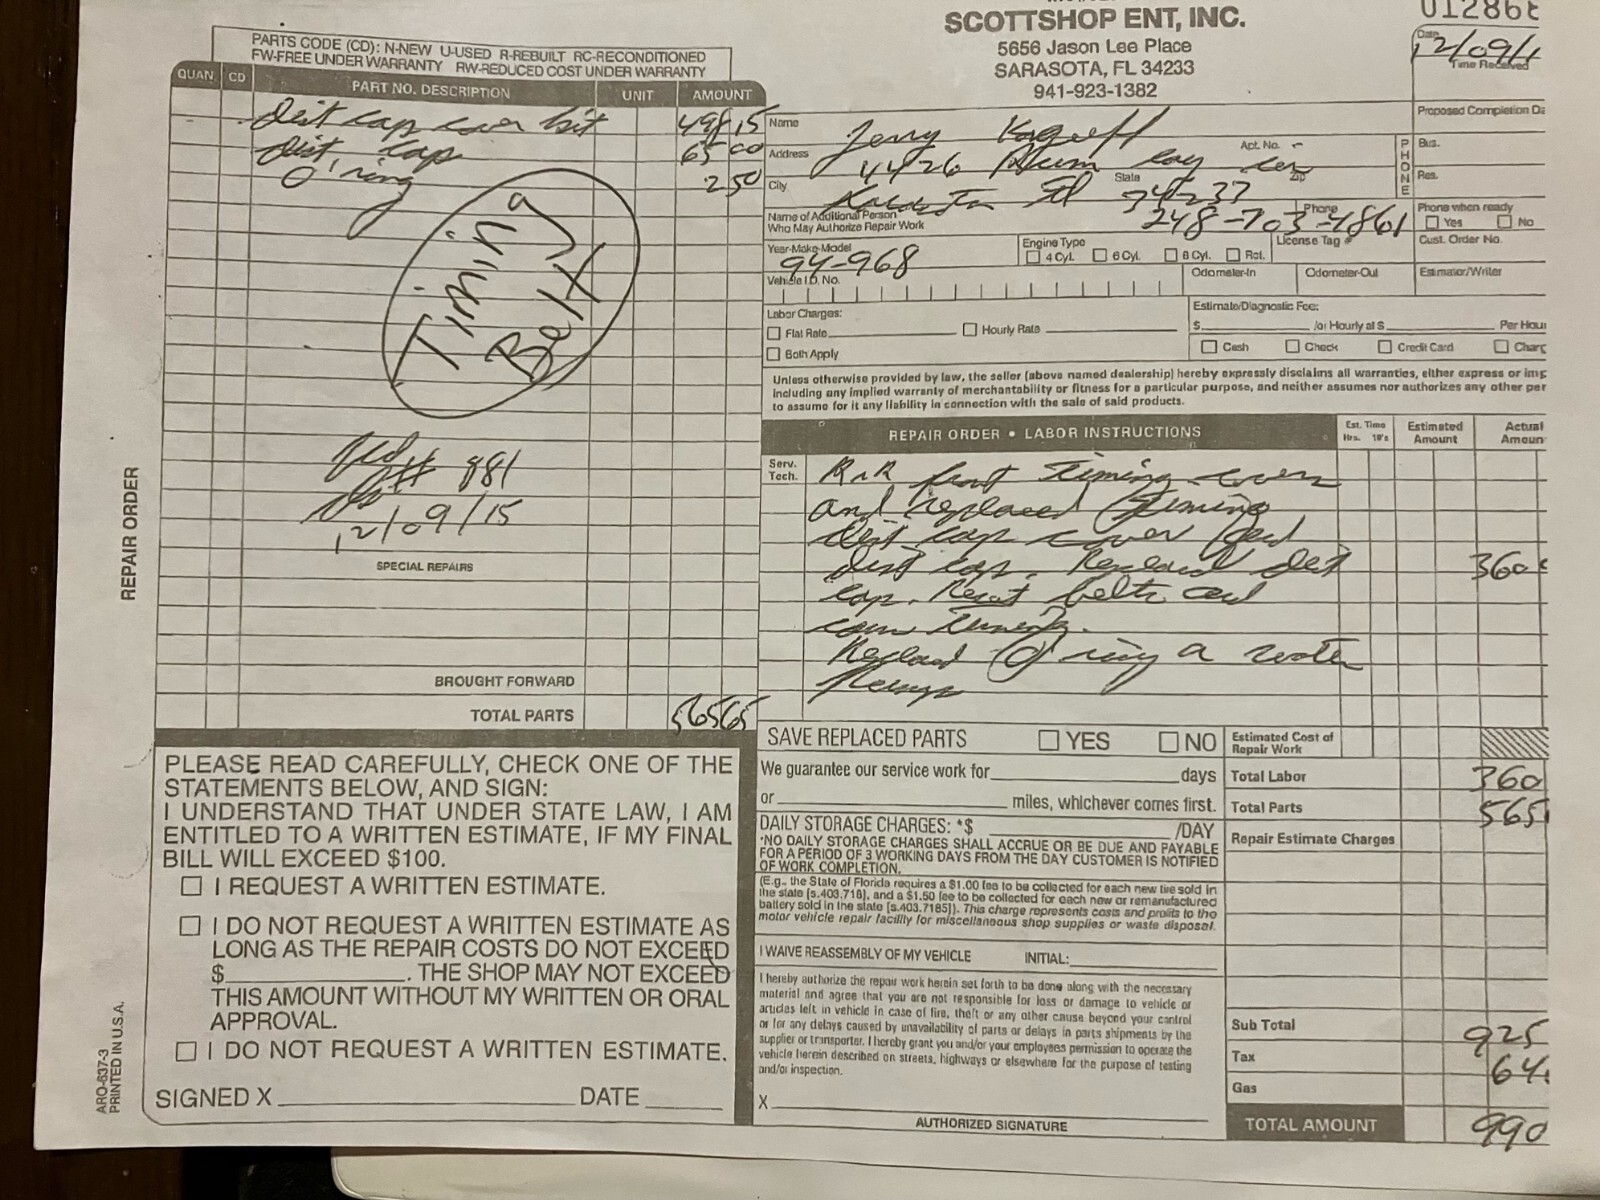 SCOTTSHOP ENT, INC.
5656 Jason Lee Place
SARASOTA, FL 34233
941-923-1382
Date
12/09/1
Time Received
PARTS CODE (CD): N-NEW U-USED R-REBUILT RC-RECONDITIONED
FW-FREE UNDER WARRANTY RW-REDUCED COST UNDER WARRANTY
QUAN CD PART NO. DESCRIPTION UNIT AMOUNT
dist cap cover kit 498 15
dist cap 65 00
O'ring 2 50
Timing
Belt
# 881
12/09/15
SPECIAL REPAIRS
BROUGHT FORWARD
TOTAL PARTS 565 65
REPAIR ORDER
ARO-637-3
PRINTED IN U.S.A.
Proposed Completion Da
Name Jerry
Address 4426 Plum
Apt. No.
City Fl State 34237 Zip
PHONE
Bus.
Res.
Name of Additional Person
Who May Authorize Repair Work
Phone 248-703-4861
Phone when ready
Yes No
Year-Make-Model
94-968
Engine Type
4 Cyl. 6 Cyl. 8 Cyl. Rot.
License Tag #
Cust. Order No.
Vehicle I.D. No.
Odometer-In
Odometer-Out
Estimator/Writer
Labor Charges:
Flat Rate Hourly Rate
Both Apply
Estimate/Diagnostic Fee:
$ /or Hourly at $ Per Hour
Cash Check Credit Card Charg
Unless otherwise provided by law, the seller (above named dealership) hereby expressly disclaims all warranties, either express or imp
including any implied warranty of merchantability or fitness for a particular purpose, and neither assumes nor authorizes any other per
to assume for it any liability in connection with the sale of said products.
REPAIR ORDER • LABOR INSTRUCTIONS
Est. Time
Hrs. 10's
Estimated
Amount
Actual
Amoun
Serv.
Tech.
R n R front timing covers
and replaced timing
dist cap cover and
dist cap. Replaced dist 360
cap. Reset belts and
cam timing.
Replaced O ring a water
Pump
SAVE REPLACED PARTS YES NO
We guarantee our service work for days
or miles, whichever comes first.
DAILY STORAGE CHARGES: *$ /DAY
*NO DAILY STORAGE CHARGES SHALL ACCRUE OR BE DUE AND PAYABLE
FOR A PERIOD OF 3 WORKING DAYS FROM THE DAY CUSTOMER IS NOTIFIED
OF WORK COMPLETION.
(E.g., the State of Florida requires a $1.00 fee to be collected for each new tire sold in
the state [s.403.718], and a $1.50 fee to be collected for each new or remanufactured
battery sold in the state [s.403.7185]). This charge represents costs and profits to the
motor vehicle repair facility for miscellaneous shop supplies or waste disposal.
I WAIVE REASSEMBLY OF MY VEHICLE INITIAL:
I hereby authorize the repair work herein set forth to be done along with the necessary
material and agree that you are not responsible for loss or damage to vehicle or
articles left in vehicle in case of fire, theft or any other cause beyond your control
or for any delays caused by unavailability of parts or delays in parts shipments by the
supplier or transporter. I hereby grant you and/or your employees permission to operate the
vehicle herein described on streets, highways or elsewhere for the purpose of testing
and/or inspection.
X
AUTHORIZED SIGNATURE
Estimated Cost of
Repair Work
Total Labor 360
Total Parts 565
Repair Estimate Charges
Sub Total 925
Tax 64
Gas
TOTAL AMOUNT 990
PLEASE READ CAREFULLY, CHECK ONE OF THE
STATEMENTS BELOW, AND SIGN:
I UNDERSTAND THAT UNDER STATE LAW, I AM
ENTITLED TO A WRITTEN ESTIMATE, IF MY FINAL
BILL WILL EXCEED $100.
I REQUEST A WRITTEN ESTIMATE.
I DO NOT REQUEST A WRITTEN ESTIMATE AS
LONG AS THE REPAIR COSTS DO NOT EXCEED
$ . THE SHOP MAY NOT EXCEED
THIS AMOUNT WITHOUT MY WRITTEN OR ORAL
APPROVAL.
I DO NOT REQUEST A WRITTEN ESTIMATE.
SIGNED X DATE